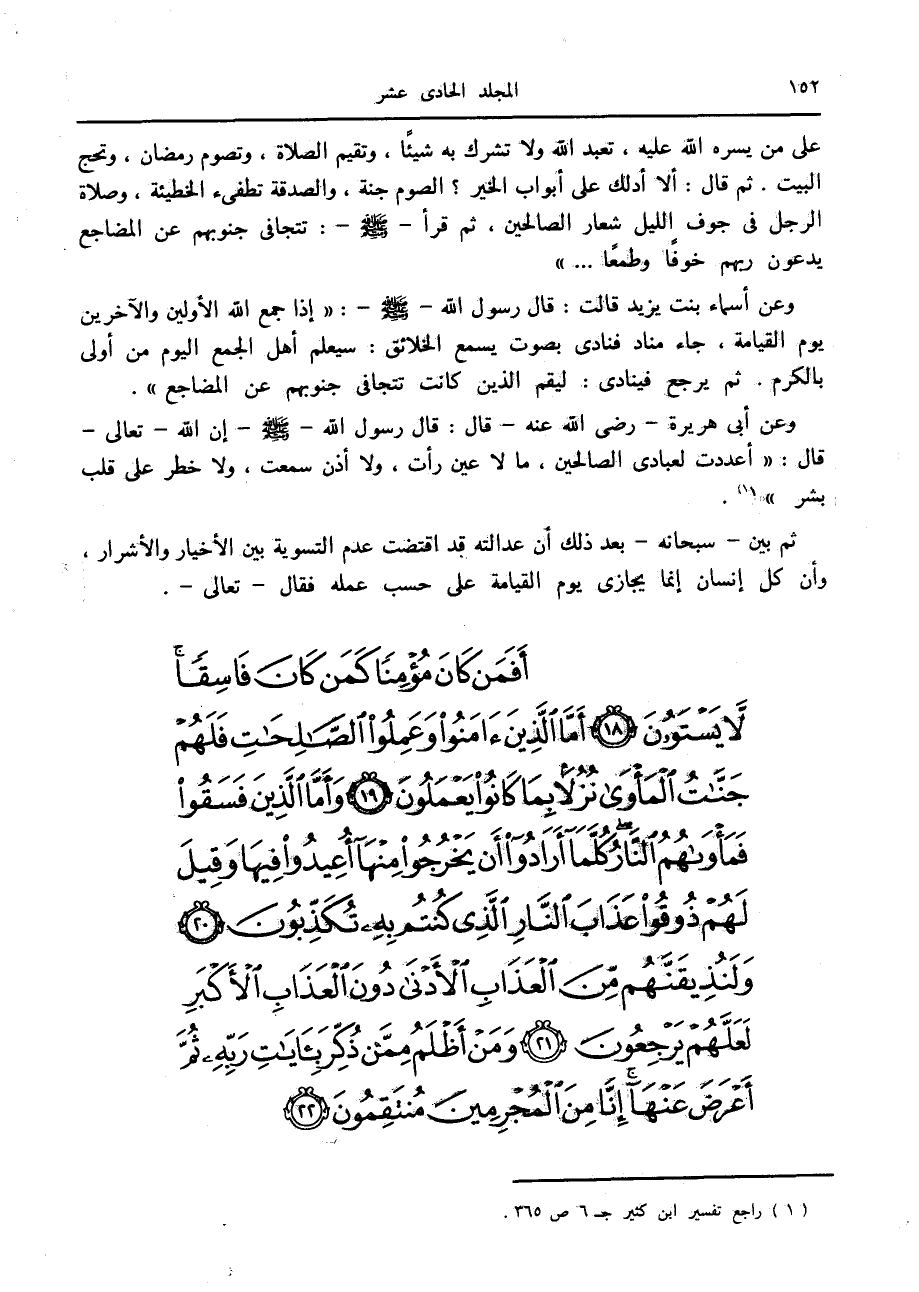 ١٥٢ المجلد الحادى عشر
على من يسره الله عليه ، تعبد الله ولا تشرك به شيئًا ، وتقيم الصلاة ، وتصوم رمضان ، وتحج
البيت . ثم قال : ألا أدلك على أبواب الخير ؟ الصوم جنة ، والصدقة تطفىء الخطيئة ، وصلاة
الرجل فى جوف الليل شعار الصالحين ، ثم قرأ – ﷺ – : تتجافى جنوبهم عن المضاجع
يدعون ربهم خوفًا وطمعًا ... »
وعن أسماء بنت يزيد قالت : قال رسول الله – ﷺ – : « إذا جمع الله الأولين والآخرين
يوم القيامة ، جاء مناد فنادى بصوت يسمع الخلائق : سيعلم أهل الجمع اليوم من أولى
بالكرم . ثم يرجع فينادى : ليقم الذين كانت تتجافى جنوبهم عن المضاجع » .
وعن أبى هريرة – رضى الله عنه – قال : قال رسول الله – ﷺ – إن الله – تعالى –
قال : « أعددت لعبادى الصالحين ، ما لا عين رأت ، ولا أذن سمعت ، ولا خطر على قلب
بشر »(١) .
ثم بين – سبحانه – بعد ذلك أن عدالته قد اقتضت عدم التسوية بين الأخيار والأشرار ،
وأن كل إنسان إنما يجازى يوم القيامة على حسب عمله فقال – تعالى – .
أَفَمَن كَانَ مُؤْمِنًا كَمَن كَانَ فَاسِقًا ۚ
لَّا يَسْتَوُۥنَ ۝١٨ أَمَّا ٱلَّذِينَ ءَامَنُوا۟ وَعَمِلُوا۟ ٱلصَّـٰلِحَـٰتِ فَلَهُمْ
جَنَّـٰتُ ٱلْمَأْوَىٰ نُزُلًۢا بِمَا كَانُوا۟ يَعْمَلُونَ ۝١٩ وَأَمَّا ٱلَّذِينَ فَسَقُوا۟
فَمَأْوَىٰهُمُ ٱلنَّارُ ۖ كُلَّمَآ أَرَادُوٓا۟ أَن يَخْرُجُوا۟ مِنْهَآ أُعِيدُوا۟ فِيهَا وَقِيلَ
لَهُمْ ذُوقُوا۟ عَذَابَ ٱلنَّارِ ٱلَّذِى كُنتُم بِهِۦ تُكَذِّبُونَ ۝٢٠
وَلَنُذِيقَنَّهُم مِّنَ ٱلْعَذَابِ ٱلْأَدْنَىٰ دُونَ ٱلْعَذَابِ ٱلْأَكْبَرِ
لَعَلَّهُمْ يَرْجِعُونَ ۝٢١ وَمَنْ أَظْلَمُ مِمَّن ذُكِّرَ بِـَٔايَـٰتِ رَبِّهِۦ ثُمَّ
أَعْرَضَ عَنْهَآ ۚ إِنَّا مِنَ ٱلْمُجْرِمِينَ مُنتَقِمُونَ ۝٢٢
( ١ ) راجع تفسير ابن كثير جـ ٦ ص ٣٦٥ .